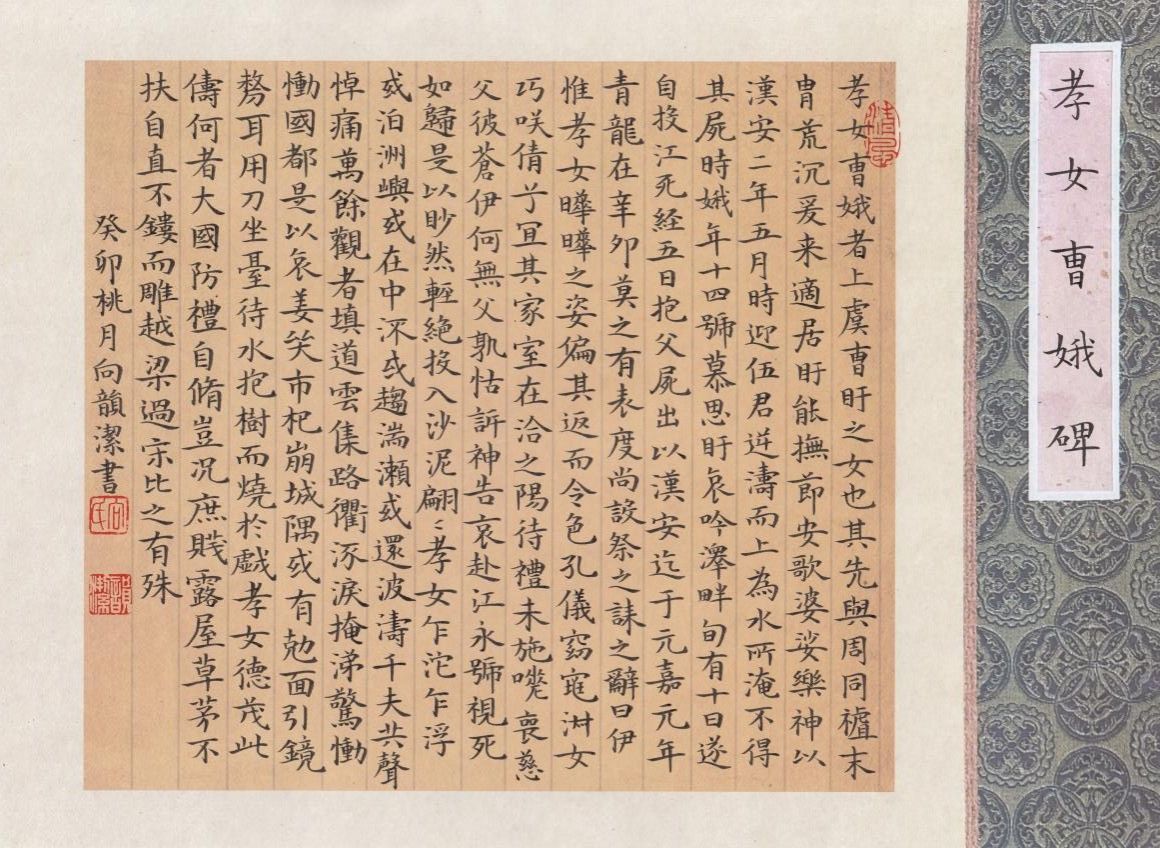 孝女曹娥碑
孝女曹娥者上虞曹盱之女也其先與周同禮末
胄荒沉爰来適居盱能撫節安歌婆娑樂神以
漢安二年五月時迎伍君逆濤而上為水所淹不得
其屍時娥年十四號慕思盱哀吟澤畔旬有十日遂
自投江死經五日抱父屍出以漢安迄于元嘉元年
青龍在辛卯莫之有表度尚設祭之誄之辭曰伊
惟孝女曄曄之姿偏其返而令色孔儀窈窕淑女
巧咲倩兮宜其家室在洽之陽待禮未施嗟喪慈
父彼蒼伊何無父孰怙訴神告哀赴江永號視死
如歸是以眇然輕絕投入沙泥翩〻孝女乍沱乍浮
或泊洲嶼或在中流或趨湍瀬或還波濤千夫共聲
悼痛萬餘觀者填道雲集路衢流淚掩涕驚慟
慟國都是以哀姜哭市杞崩城隅或有勊面引鏡
剺耳用刀坐臺待水抱樹而燒於戲孝女德茂此
儔何者大國防禮自脩豈況庶賤露屋草茅不
扶自直不鏤而雕越梁過宋比之有殊
癸卯桃月向韻潔書
向氏
韻潔